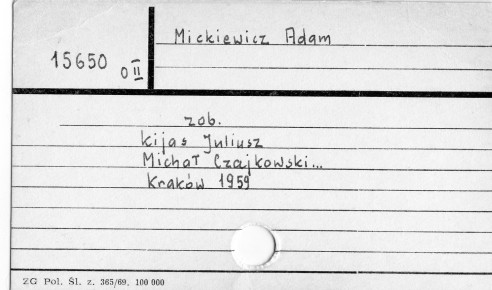 Mickiewicz Adam
15650 O II
zob.
Kijas Juliusz
Michał Czajkowski...
Kraków 1959
ZG Pol. Śl. z. 365/69. 100 000